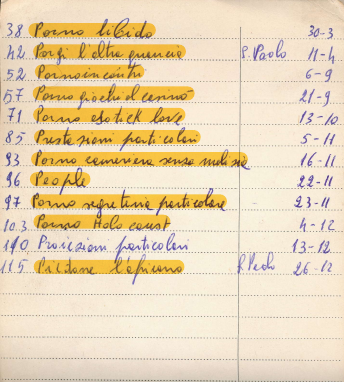 38 Porno libido 30-3
42 Porgi l'altra guancia S. Paolo 11-4
52 Pornoincontri 6-9
57 Porno giochi al casinò 21-9
71 Porno esotick love 13-10
85 Prestazioni particolari 5-11
93 Porno cameriera senza malizia 16-11
96 People 22-11
97 Porno segretaria particolare 23-11
103 Porno Holocaust 4-12
110 Proiezioni particolari 13-12
115 l'africano S. Paolo 26-12